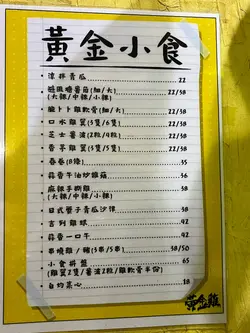 黃金小食
涼拌青瓜 22
避風塘薯茄(細/大) 22/38
(大辣/中辣/小辣)
脆卜卜雞軟骨(細/大) 22/38
口水雞翼(3隻/6隻) 22/38
芝士薯波(2粒/4粒) 22/38
香茅雞翼(3隻/6隻) 22/38
春卷(8條) 35
蒜香牛油炒雜菇 36
麻辣手撕雞 38
(大辣/中辣/小辣)
日式蟹子青瓜沙律 38
吉列雞球 38
蒜香一口牛 42
串燒雞/豬(3串/5串) 38/50
小食拼盤 65
(雞翼2隻/薯波2粒/雞軟骨半份)
白灼菜心 18
黃金雞